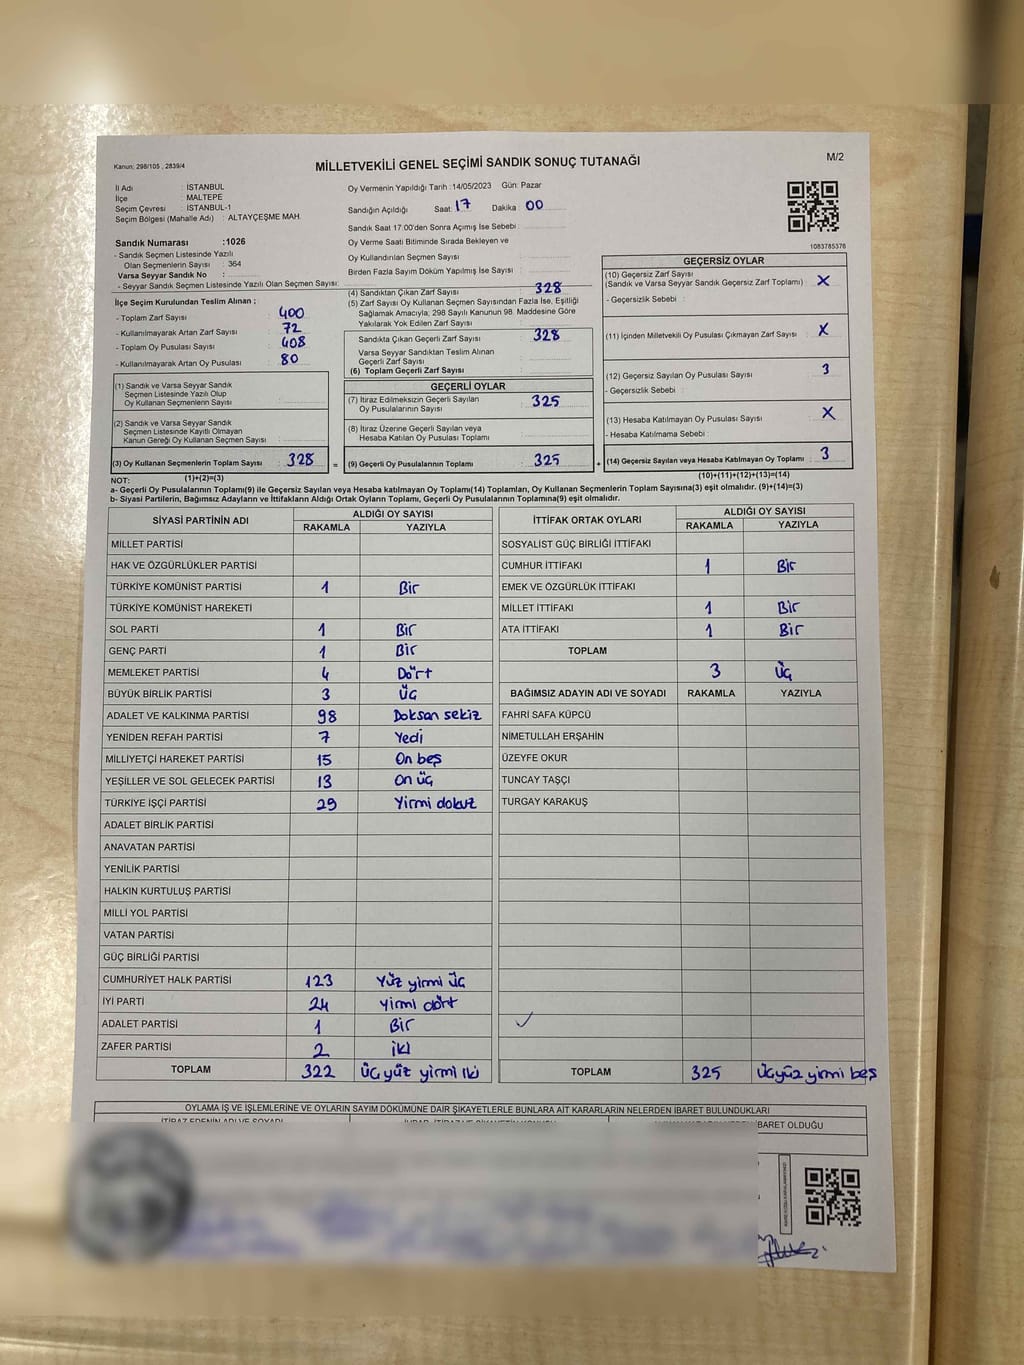 Kanun: 298/105 , 2839/4
MİLLETVEKİLİ GENEL SEÇİMİ SANDIK SONUÇ TUTANAĞI
M/2
İl Adı : İSTANBUL
İlçe : MALTEPE
Seçim Çevresi : İSTANBUL-1
Seçim Bölgesi (Mahalle Adı) : ALTAYÇEŞME MAH.
Sandık Numarası :1026
- Sandık Seçmen Listesinde Yazılı
Olan Seçmenlerin Sayısı : 364
Varsa Seyyar Sandık No :
- Seyyar Sandık Seçmen Listesinde Yazılı Olan Seçmen Sayısı:
Oy Vermenin Yapıldığı Tarih :14/05/2023 Gün: Pazar
Sandığın Açıldığı Saat: 17 Dakika 00
Sandık Saat 17:00'den Sonra Açımış İse Sebebi :
Oy Verme Saati Bitiminde Sırada Bekleyen ve
Oy Kullandırılan Seçmen Sayısı :
Birden Fazla Sayım Döküm Yapılmış İse Sayısı :
1083785376
İlçe Seçim Kurulundan Teslim Alınan ;
- Toplam Zarf Sayısı : 400
- Kullanılmayarak Artan Zarf Sayısı : 72
- Toplam Oy Pusulası Sayısı : 408
- Kullanılmayarak Artan Oy Pusulası : 80
(1) Sandık ve Varsa Seyyar Sandık
Seçmen Listesinde Yazılı Olup
Oy Kullanan Seçmenlerin Sayısı :
(2) Sandık ve Varsa Seyyar Sandık
Seçmen Listesinde Kayıtlı Olmayan
Kanun Gereği Oy Kullanan Seçmen Sayısı :
(3) Oy Kullanan Seçmenlerin Toplam Sayısı : 328
(4) Sandıktan Çıkan Zarf Sayısı : 328
(5) Zarf Sayısı Oy Kullanan Seçmen Sayısından Fazla İse, Eşitliği
Sağlamak Amacıyla; 298 Sayılı Kanunun 98. Maddesine Göre
Yakılarak Yok Edilen Zarf Sayısı :
Sandıkta Çıkan Geçerli Zarf Sayısı : 328
Varsa Seyyar Sandıktan Teslim Alınan
Geçerli Zarf Sayısı :
(6) Toplam Geçerli Zarf Sayısı :
GEÇERLİ OYLAR
(7) İtiraz Edilmeksizin Geçerli Sayılan
Oy Pusulalarının Sayısı : 325
(8) İtiraz Üzerine Geçerli Sayılan veya
Hesaba Katılan Oy Pusulası Toplamı :
= (9) Geçerli Oy Pusulalarının Toplamı : 325 +
GEÇERSİZ OYLAR
(10) Geçersiz Zarf Sayısı
(Sandık ve Varsa Seyyar Sandık Geçersiz Zarf Toplamı) : X
- Geçersizlik Sebebi :
(11) İçinden Milletvekili Oy Pusulası Çıkmayan Zarf Sayısı : X
(12) Geçersiz Sayılan Oy Pusulası Sayısı : 3
- Geçersizlik Sebebi :
(13) Hesaba Katılmayan Oy Pusulası Sayısı : X
- Hesaba Katılmama Sebebi :
(14) Geçersiz Sayılan veya Hesaba Katılmayan Oy Toplamı : 3
NOT: (1)+(2)=(3) (10)+(11)+(12)+(13)=(14)
a- Geçerli Oy Pusulalarının Toplamı(9) ile Geçersiz Sayılan veya Hesaba katılmayan Oy Toplamı(14) Toplamları, Oy Kullanan Seçmenlerin Toplam Sayısına(3) eşit olmalıdır. (9)+(14)=(3)
b- Siyasi Partilerin, Bağımsız Adayların ve İttifakların Aldığı Ortak Oyların Toplamı, Geçerli Oy Pusulalarının Toplamına(9) eşit olmalıdır.
SİYASİ PARTİNİN ADI ALDIĞI OY SAYISI
RAKAMLA YAZIYLA
MİLLET PARTİSİ
HAK VE ÖZGÜRLÜKLER PARTİSİ
TÜRKİYE KOMÜNİST PARTİSİ 1 Bir
TÜRKİYE KOMÜNİST HAREKETİ
SOL PARTİ 1 Bir
GENÇ PARTİ 1 Bir
MEMLEKET PARTİSİ 4 Dört
BÜYÜK BİRLİK PARTİSİ 3 Üç
ADALET VE KALKINMA PARTİSİ 98 Doksan sekiz
YENİDEN REFAH PARTİSİ 7 Yedi
MİLLİYETÇİ HAREKET PARTİSİ 15 On beş
YEŞİLLER VE SOL GELECEK PARTİSİ 13 On üç
TÜRKİYE İŞÇİ PARTİSİ 29 Yirmi dokuz
ADALET BİRLİK PARTİSİ
ANAVATAN PARTİSİ
YENİLİK PARTİSİ
HALKIN KURTULUŞ PARTİSİ
MİLLİ YOL PARTİSİ
VATAN PARTİSİ
GÜÇ BİRLİĞİ PARTİSİ
CUMHURİYET HALK PARTİSİ 123 Yüz yirmi üç
İYİ PARTİ 24 Yirmi dört
ADALET PARTİSİ 1 Bir
ZAFER PARTİSİ 2 iki
TOPLAM 322 Üç yüz yirmi iki
İTTİFAK ORTAK OYLARI ALDIĞI OY SAYISI
RAKAMLA YAZIYLA
SOSYALİST GÜÇ BİRLİĞİ İTTİFAKI
CUMHUR İTTİFAKI 1 Bir
EMEK VE ÖZGÜRLÜK İTTİFAKI
MİLLET İTTİFAKI 1 Bir
ATA İTTİFAKI 1 Bir
TOPLAM
3 Üç
BAĞIMSIZ ADAYIN ADI VE SOYADI RAKAMLA YAZIYLA
FAHRİ SAFA KÜPCÜ
NİMETULLAH ERŞAHİN
ÜZEYFE OKUR
TUNCAY TAŞÇI
TURGAY KARAKUŞ
TOPLAM 325 Üçyüz yirmi beş
OYLAMA İŞ VE İŞLEMLERİNE VE OYLARIN SAYIM DÖKÜMÜNE DAİR ŞİKAYETLERLE BUNLARA AİT KARARLARIN NELERDEN İBARET BULUNDUKLARI
İTİRAZ EDENİN ADI VE SOYADI
İBARET OLDUĞU